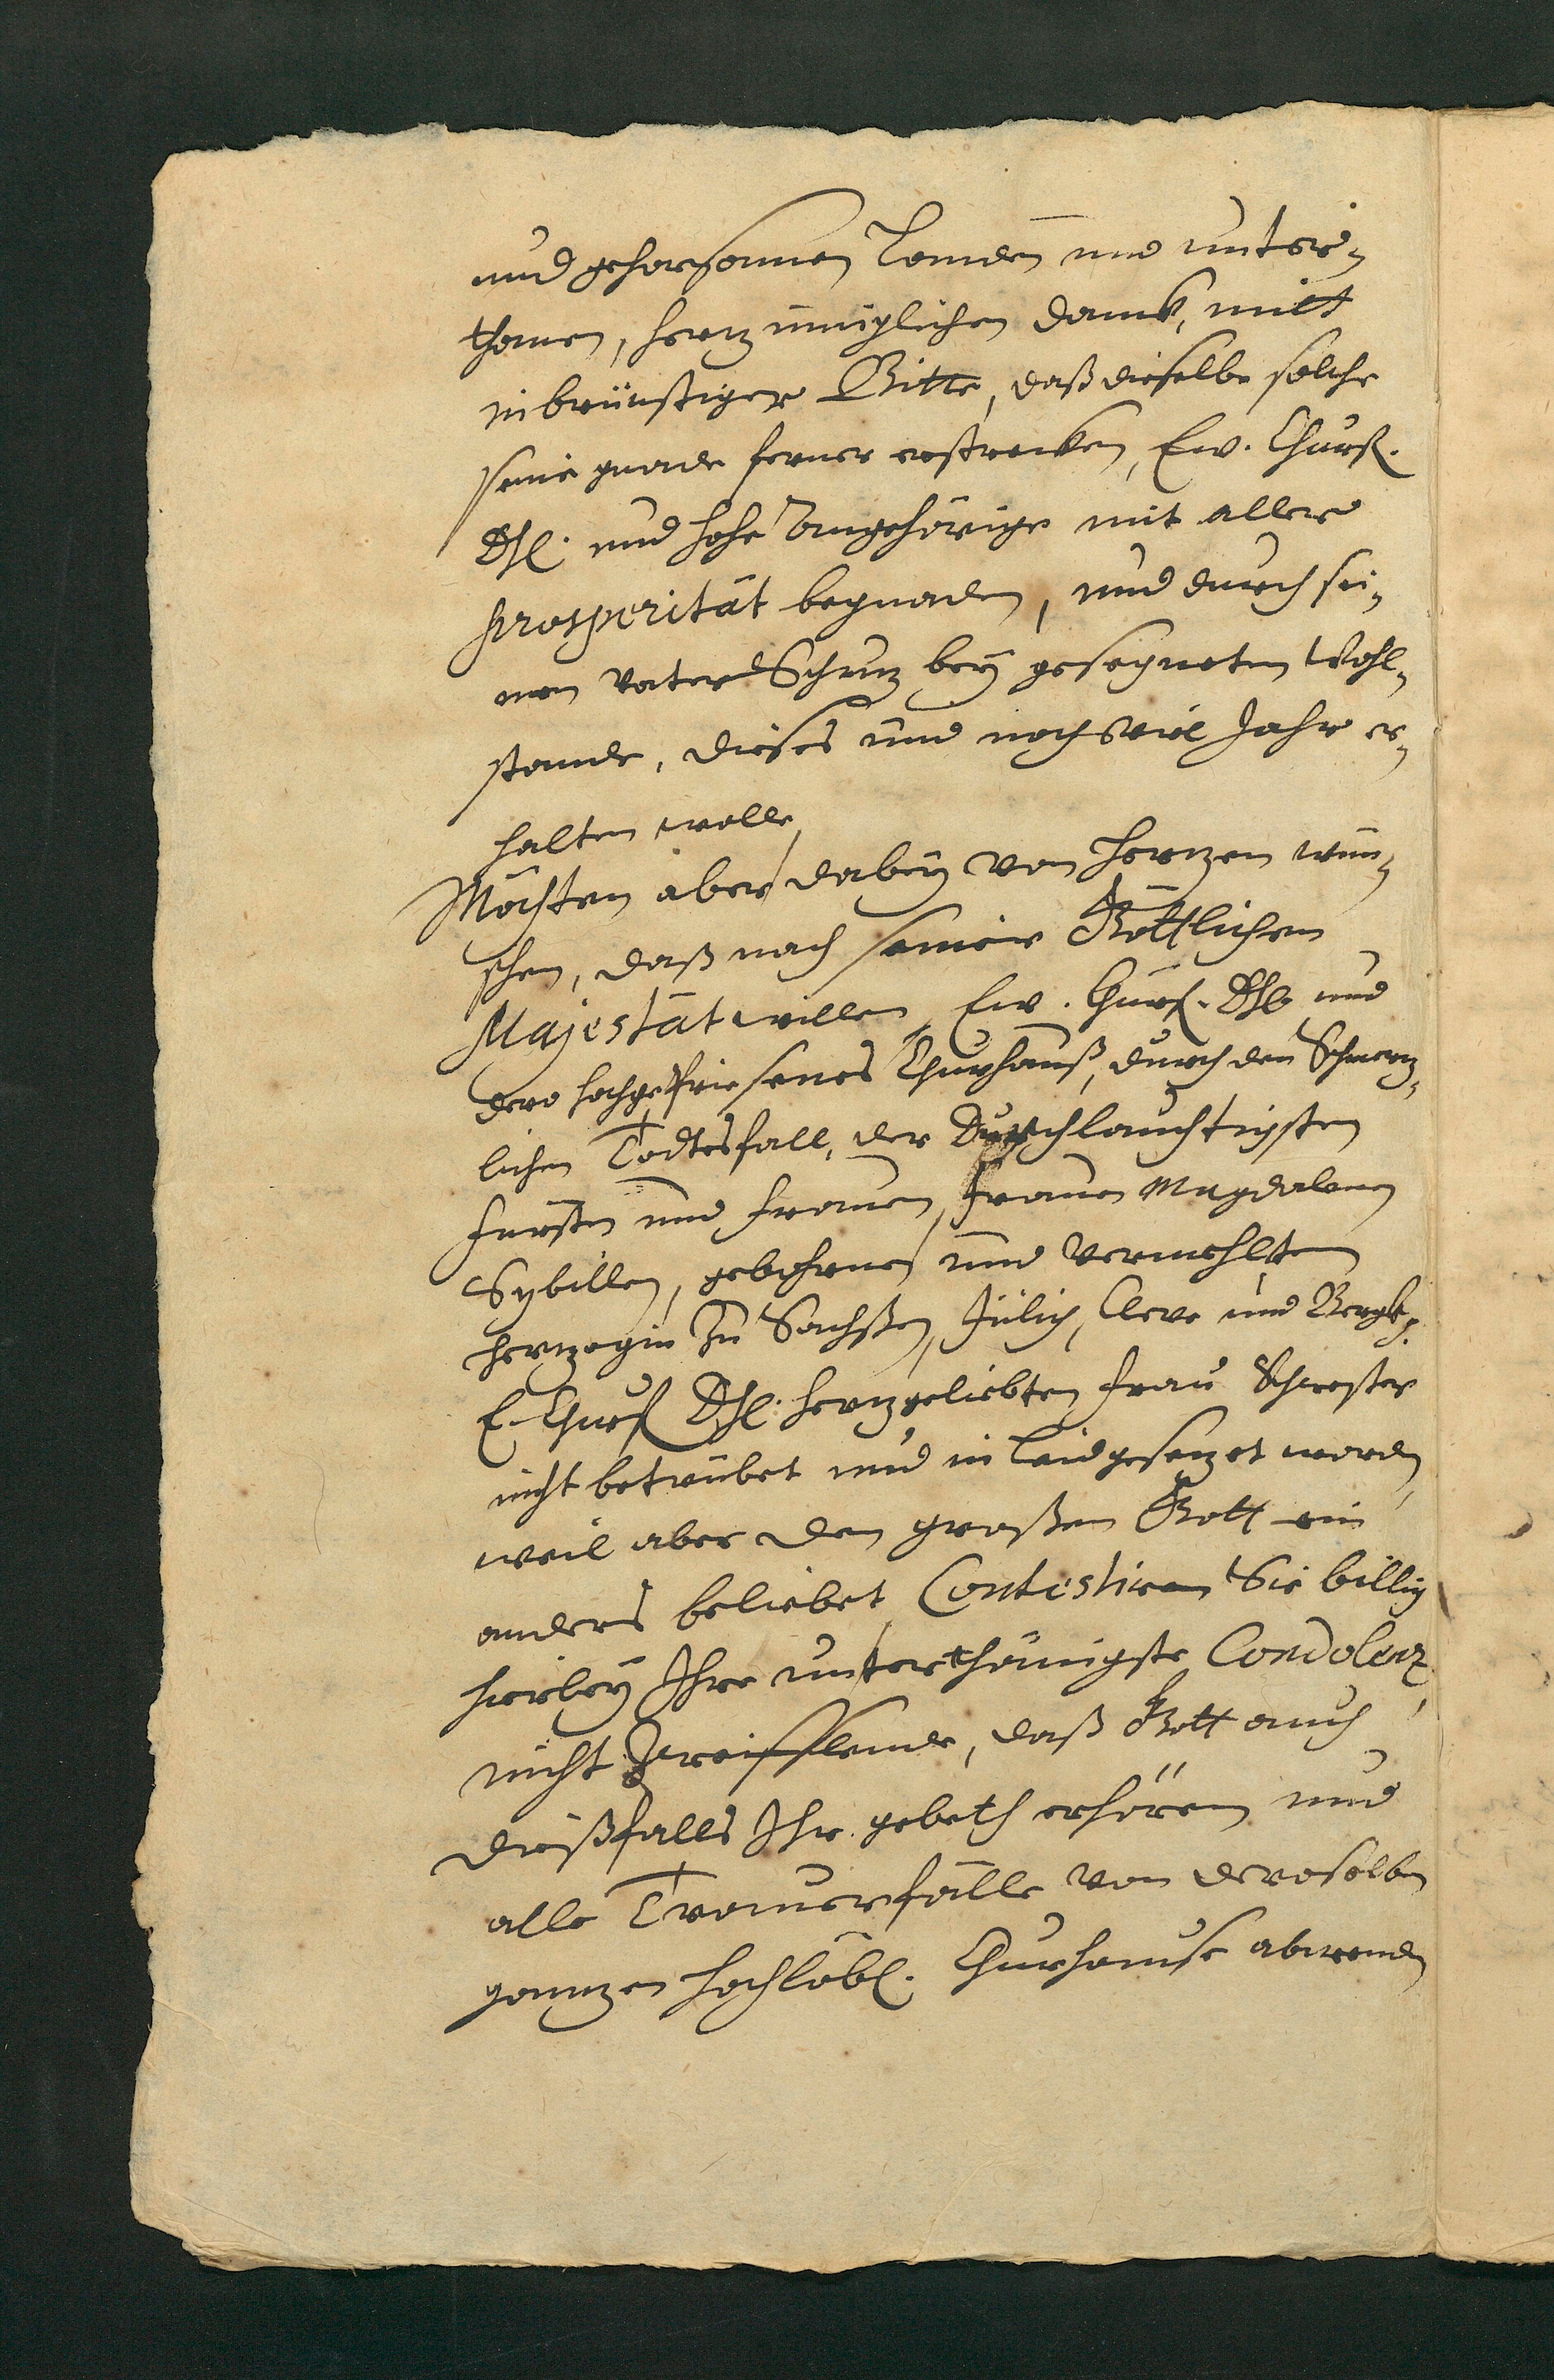 und gehorsamen Landen und unter-
thanen, hertzinniglichen danck, mitt
inbrünstiger Bitte, daß dieselbe solche
seine gnade ferner erstrecken, Ew. Churfl.
Dhl. und hohe Angehörige mit aller
prosperität begnaden, und durch sei-
nen Vater Schutz bey gesegneten Wohl-
stande, dieses und noch viel Jahr er-
halten wolle,
Möchten aber dabey von hertzen wün-
schen, daß nach seiner Göttlichen
Majestät willen, Ew. Churf. Dhl. und
dero hochgepriesenes Churhauß, durch den Schmertz-
lichen Todtesfall, der Durchlauchtigsten
Fürstin und Frauen, Frauen Magdalenen
Sybillen, gebohrnen und Vermehlten
Hertzogin Zu Sachßen, Jülich, Cleve und Bergk p.
E. Churfl Dhl. hertzgeliebten Frau Schwester
nicht betrübet und in Leid gesetzet worden,
weil aber dem großen Gott ein
anders beliebet, Contestiren Sie billig
hierbey Ihre unterthänigste Condolenz,
nicht Zweifflende, daß Gott auch
dießfalls Ihr gebeth erhören und
alle Trauerfälle von deroselben
gantzen hochlöbl. Churhause abwenden